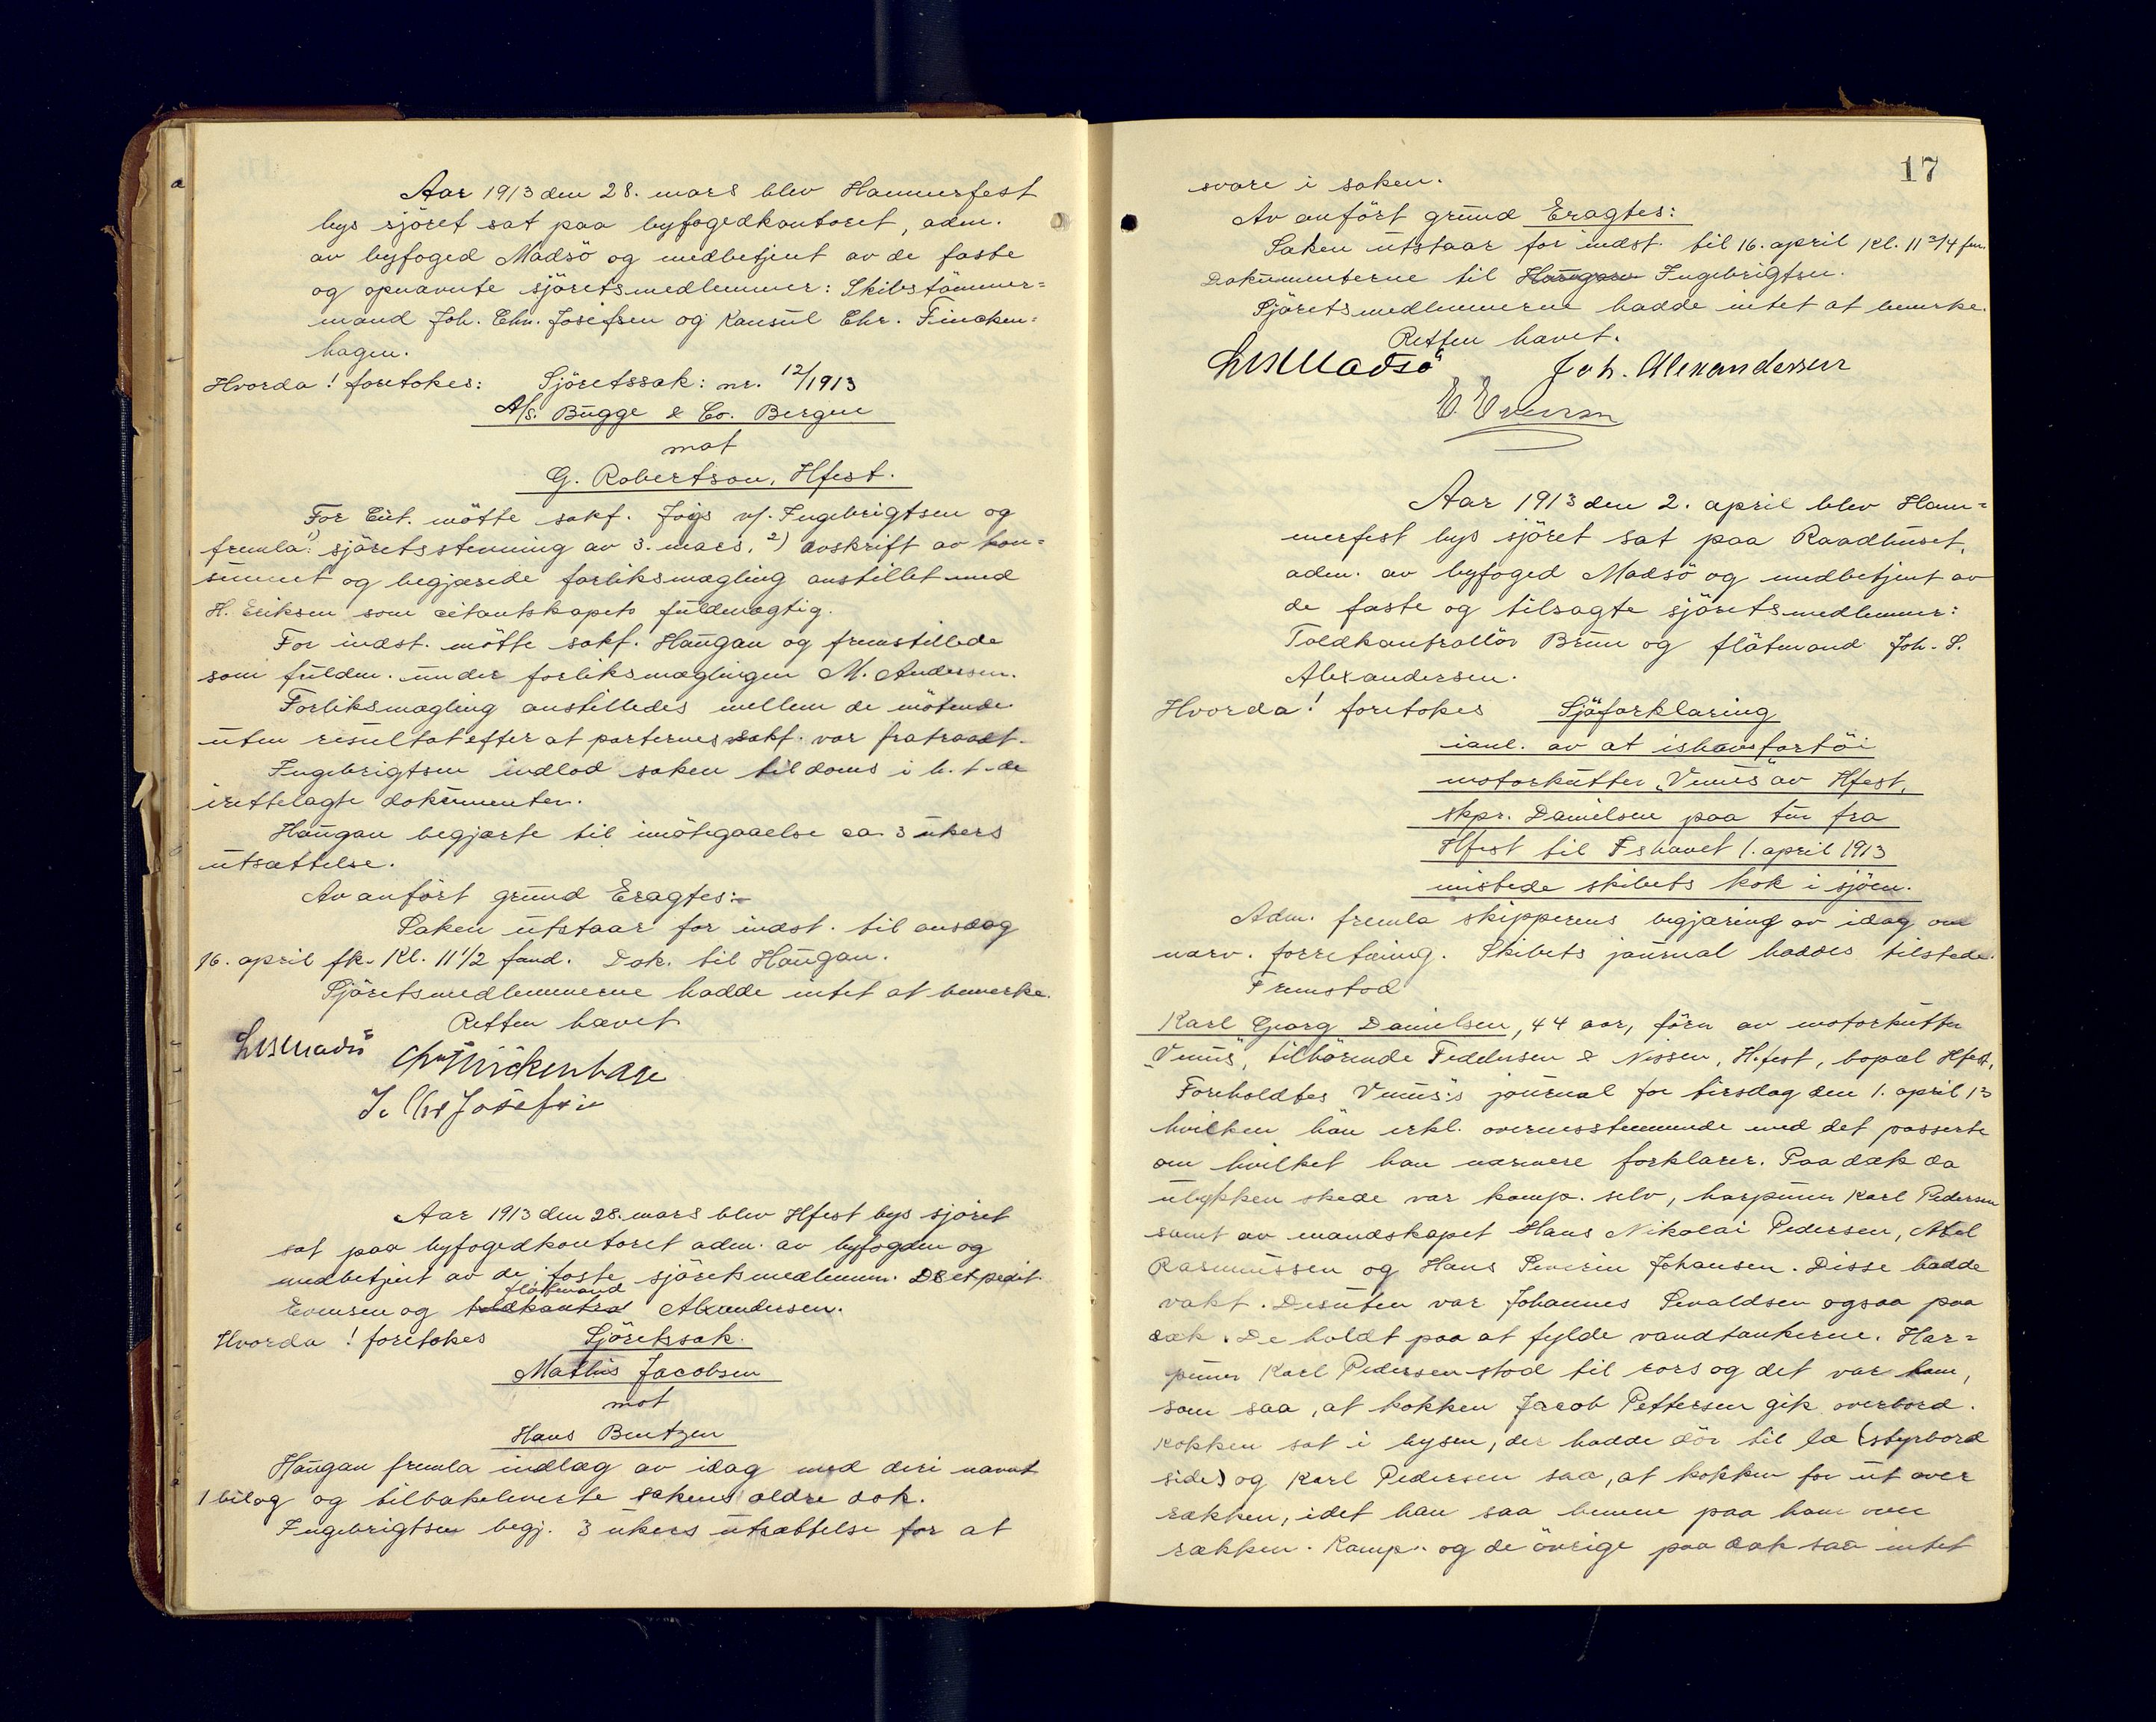 Aar 1913 den 28. mars blev Hammerfest
bys sjöret sat paa byfogedkontoret, adm.
av byfoged Madsö og medbetjent av de faste
og opnævnte sjöretsmedlemmer: Skibstömmer=
mand Joh. Chr. Josefsen og Konsul Chr. Fincken=
hagen.
Hvorda! foretokes: Sjöretssak: nr. 12/1913
A/s. Bugge & Co. Bergen
mot
G. Robertson, Hfest.
For Cit. mötte sakf. Joijs v/. Ingebrigtsen og
fremla 1) sjöretsstevning av 3. mars, 2) avskrift av kon=
sumet og begjærede forliksmægling anstillet med
H. Eriksen som citantskapets fuldmægtig.
For indst. mötte sakf. Haugan og fremstillede
som fuldm. under forliksmæglingen M. Andersen.
Forliksmægling anstilledes mellem de mötende
uten resultat efter at parternes sakf. var fratraadt.
Ingebrigtsen indlod saken til doms i h. t. de
irettelagte dokumenter.
Haugan begjærte til imötegaaelse ca. 3 ukers
utsættelse.
Av anfört grund Eragtes:
Saken utstaar for indst. til onsdag
16. april fk. Kl. 11 1/2 fmd. Dok. til Haugan.
Sjöretsmedlemmerne hadde intet at bemerke.
Retten hævet.
Madsö Chr Finckenhage
J. Chr Josefsen
Aar 1913 den 28. mars blev Hfest bys sjöret
sat paa byfogedkontoret adm. av byfogden og
medbetjent av de faste sjöretsmedlemm. DSexpedit.
flötmand
Evensen og toldkontrol Alexandersen.
Hvorda! foretokes Sjöretssak.
Mathis Jacobsen
mot
Hans Bentzen
Haugan fremla indlæg av idag med deri nævnt
1 bilag og tilbakeleverte sakens ældre dok.
Ingebrigtsen begj. 3 ukers utsættelse for at
17
svare i saken.
Av anfört grund Eragtes:
Saken utstaar for indst. til 16. april Kl. 11 3/4 fm.
Dokumenterne til Haugan Ingebrigtsen.
Sjöretsmedlemmerne hadde intet at bemerke.
Retten hævet.
Madsö Joh. Alexandersen
E Evensen
Aar 1913 den 2. april blev Ham=
merfest bys sjöret sat paa Raadhuset,
adm. av byfoged Madsö og medbetjent av
de faste og tilsagte sjöretsmedlemmer:
Toldkontrollör Brun og flötmand Joh. S.
Alexandersen.
Hvorda! foretokes Sjöforklaring
ianl. av at ishavsfartöi
motorkutter "Venus" av Hfest,
skpr. Danielsen paa tur fra
Hfest til Ishavet 1. april 1913
mistede skibets kok i sjöen.
Adm. fremla skipperens begjæring av idag om
nærv. forretning. Skibets journal haddes tilstede.
Fremstod
Karl Georg Danielsen, 44 aar, förer av motorkutter
"Venus", tilhörende Feddersen & Nissen, H.fest, bopæl Hfest.
Foreholdtes Venus's journal for tirsdag den 1. april 13
hvilken han erkl. overensstemmende med det passerte
om hvilket han nærmere forklarer. Paa dæk da
ulykken skede var komp. selv, harpuner Karl Pedersen
samt av mandskapet Hans Nikolai Pedersen, Abel
Rasmussen og Hans Severin Johansen. Disse hadde
vakt. Desuten var Johannes Sivaldsen ogsaa paa
dæk. De holdt paa at fylde vandtankerne. Har=
puner Karl Pedersen stod til rors og det var ham,
som saa, at kokken Jacob Pettersen gik overbord.
Kokken sat i bysen, der hadde dör til læ (styrbord
side) og Karl Pedersen saa, at kokken for ut over
rækken, idet han saa benene paa ham over
rækken. Komp. og de övrige paa dæk saa intet